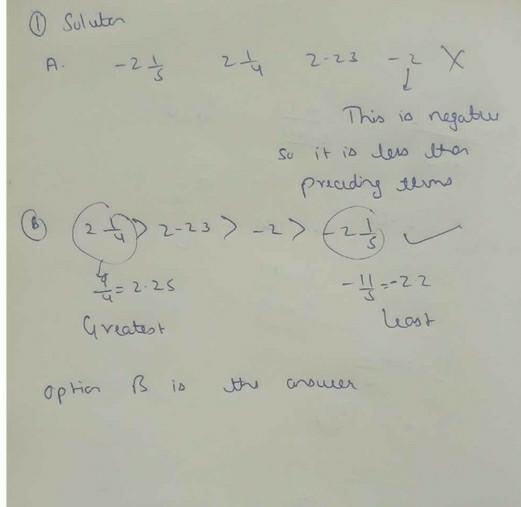 ① Soluton
A. -2 1/5 2 1/4 2.23 -2 X
This is negative
So it is less than
preceding terms
Ⓑ 2 1/4 > 2.23 > -2 > -2 1/5 ✓
9/4 = 2.25 -11/5 = -2.2
Greatest Least
option B is the answer